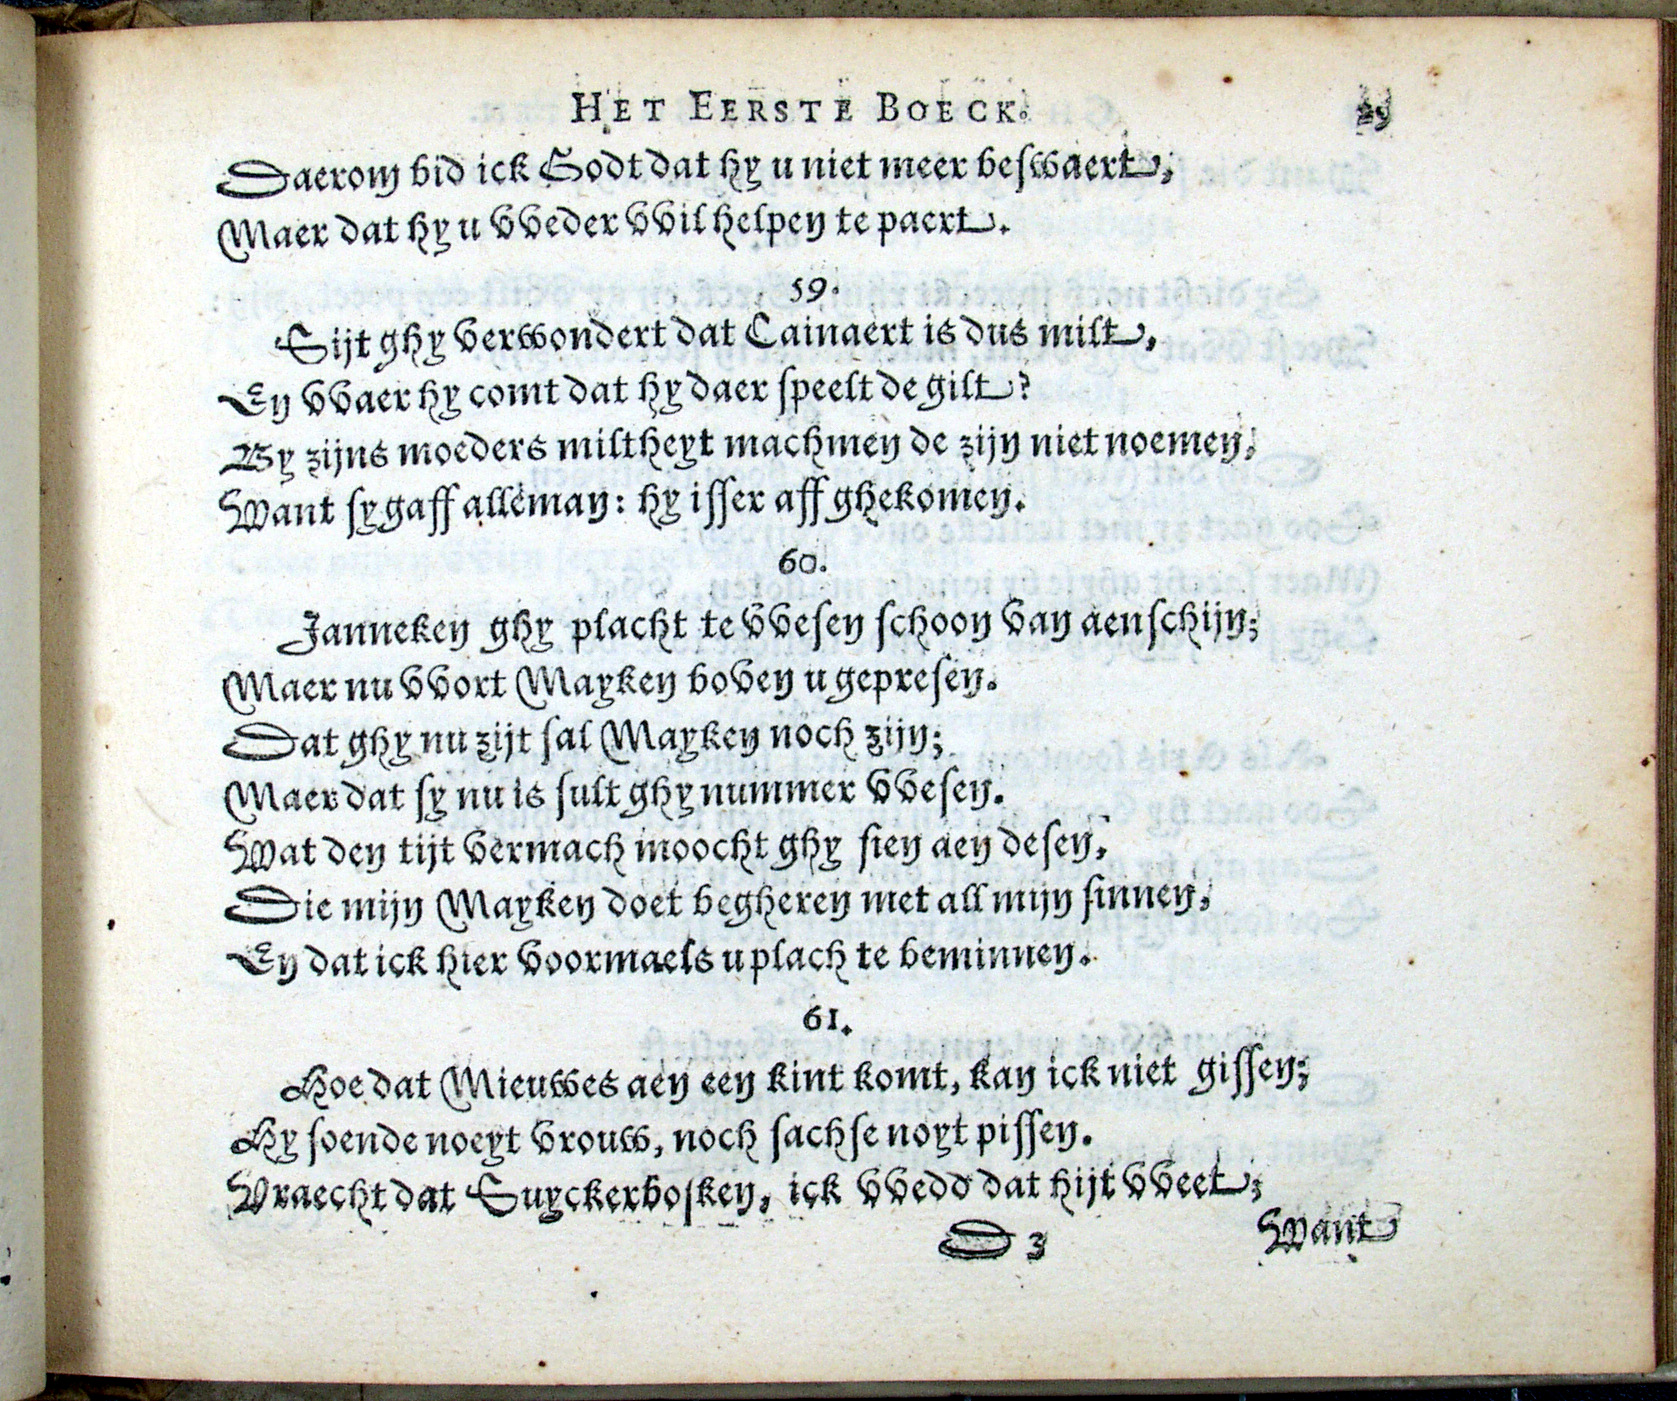 HET EERSTE BOECK. 29
Daerom bid ick Godt dat hy u niet meer beswaert,
Maer dat hy u vveder vvil helpen te paert.
59.
Sijt ghy verwondert dat Cainaert is dus milt,
En vvaer hy comt dat hy daer speelt de gilt?
By zijns moeders miltheyt machmen de zijn niet noemen,
Want sy gaff alleman: hy isser aff ghekomen.
60.
Janneken ghy placht te vvesen schoon van aenschijn;
Maer nu vvort Mayken boven u gepresen.
Dat ghy nu zijt sal Mayken noch zijn;
Maer dat sy nu is sult ghy nummer vvesen.
Wat den tijt vermach moocht ghy sien aen desen,
Die mijn Mayken doet begheren met all mijn sinnen,
En dat ick hier voormaels u plach te beminnen.
61.
Hoe dat Mieuwes aen een kint komt, kan ick niet gissen;
Hy soende noeyt vrouw, noch sachse noyt pissen.
Vraecht dat Suyckerbosken, ick vvedd dat hijt vveet;
D 3 Want